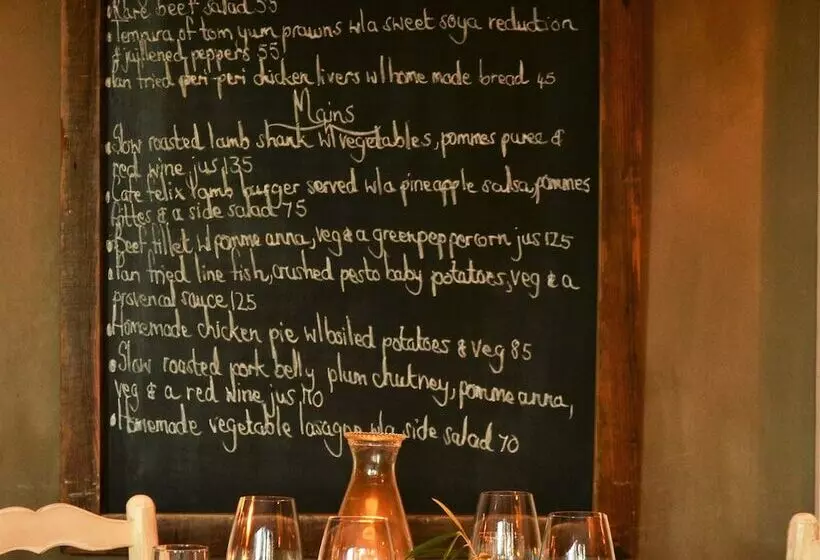 Rare beef salad 55
• Tempura of tom yum prawns w/a sweet soya reduction
& jullened peppers 55
• Pan fried peri-peri chicken livers w/home made bread 45
Mains
• Slow roasted lamb shank w/vegetables, pommes puree &
red wine jus 135
• Cafe felix lamb burger served w/a pineapple salsa, pommes
frites & a side salad 75
• Beef fillet w pomme anna, veg & a greenpeppercorn jus 125
• Pan fried line fish, crushed pesto baby potatoes, veg & a
provencal sauce 125
• Homemade chicken pie w/boiled potatoes & veg 85
• Slow roasted pork belly, plum chutney, pomme anna,
veg & a red wine jus 110
• Homemade vegetable lasagne w/a side salad 70